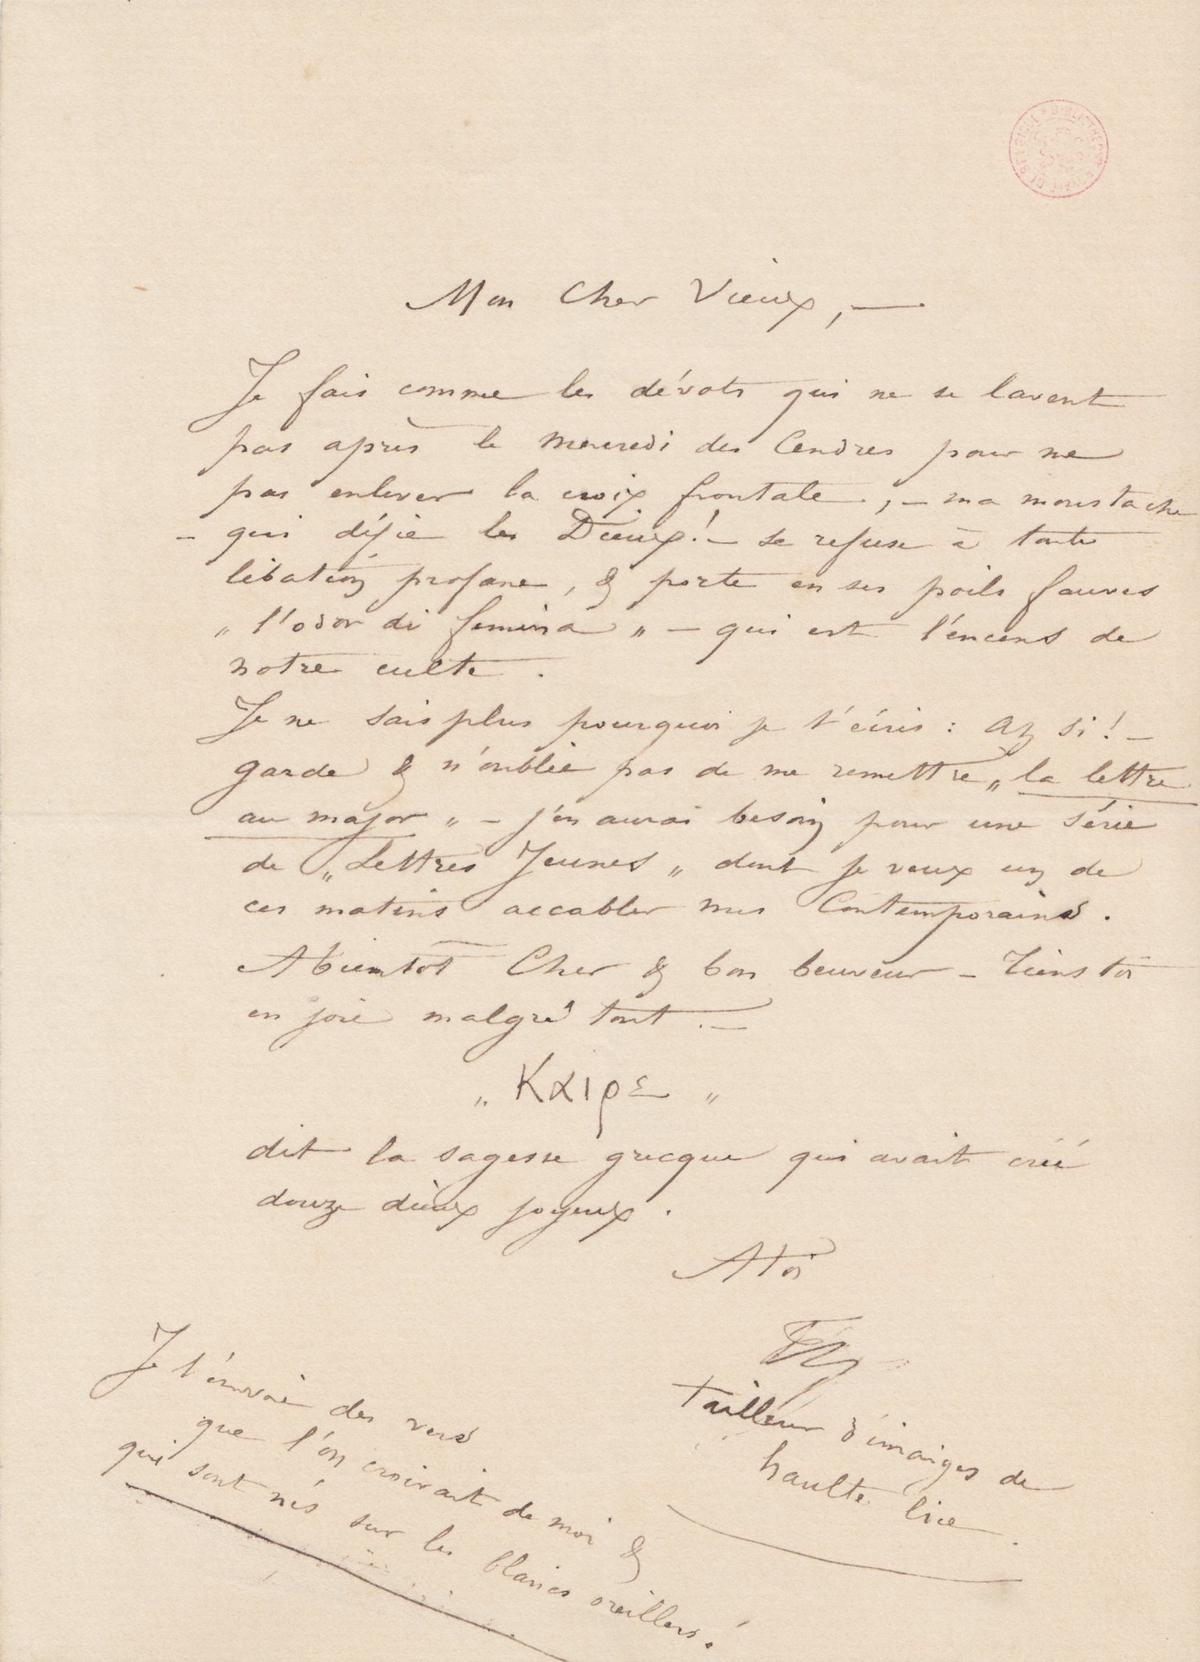 Mon Cher Vieux, —
Je fais comme les dévots qui ne se lavent
pas après le Mercredi des Cendres pour ne
pas enlever la croix frontale, — ma moustache
— qui défie les Dieux! — se refuse à toute
libation profane, & porte en ses poils fauves
„ l'odor di femina „ — qui est l'encens de
notre culte.
Je ne sais plus pourquoi je t'écris : Ah si! —
garde & n'oublie pas de me remettre „ la lettre
au major „ — j'en aurai besoin pour une série
de „ Lettres Jeunes „ dont je veux un de
ces matins accabler mes Contemporains.
A bientot Cher & bon beuveur — Tiens toi
en joie malgré tout. —
„ Καιρε „
dit la sagesse grecque qui avait créé
douze dieux joyeux.
A toi
tailleur d'imaiges de
haulte lice.
Je t'envoie des vers
que l'on croirait de moi &
qui sont nés sur les blancs oreillers!